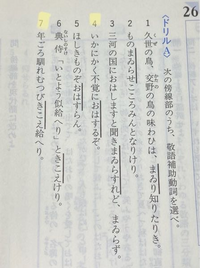 26
〈ドリルA〉 次の傍線部のうち、敬語補助動詞を選べ。
1 久世の鳥、交野の鳥の味わひは、まゐり知りたりき。
2 ものまゐらせこころみんとなりけり。
3 三河の国におはしますと聞きまゐらすれど、まゐらず。
4 いかにかく不覚におはするぞ。
5 ほしきものぞおはすらん。
6 典侍「いとよう似給へり」ときこえけり。
7 年ごろ馴れむつびきこえ給へり。